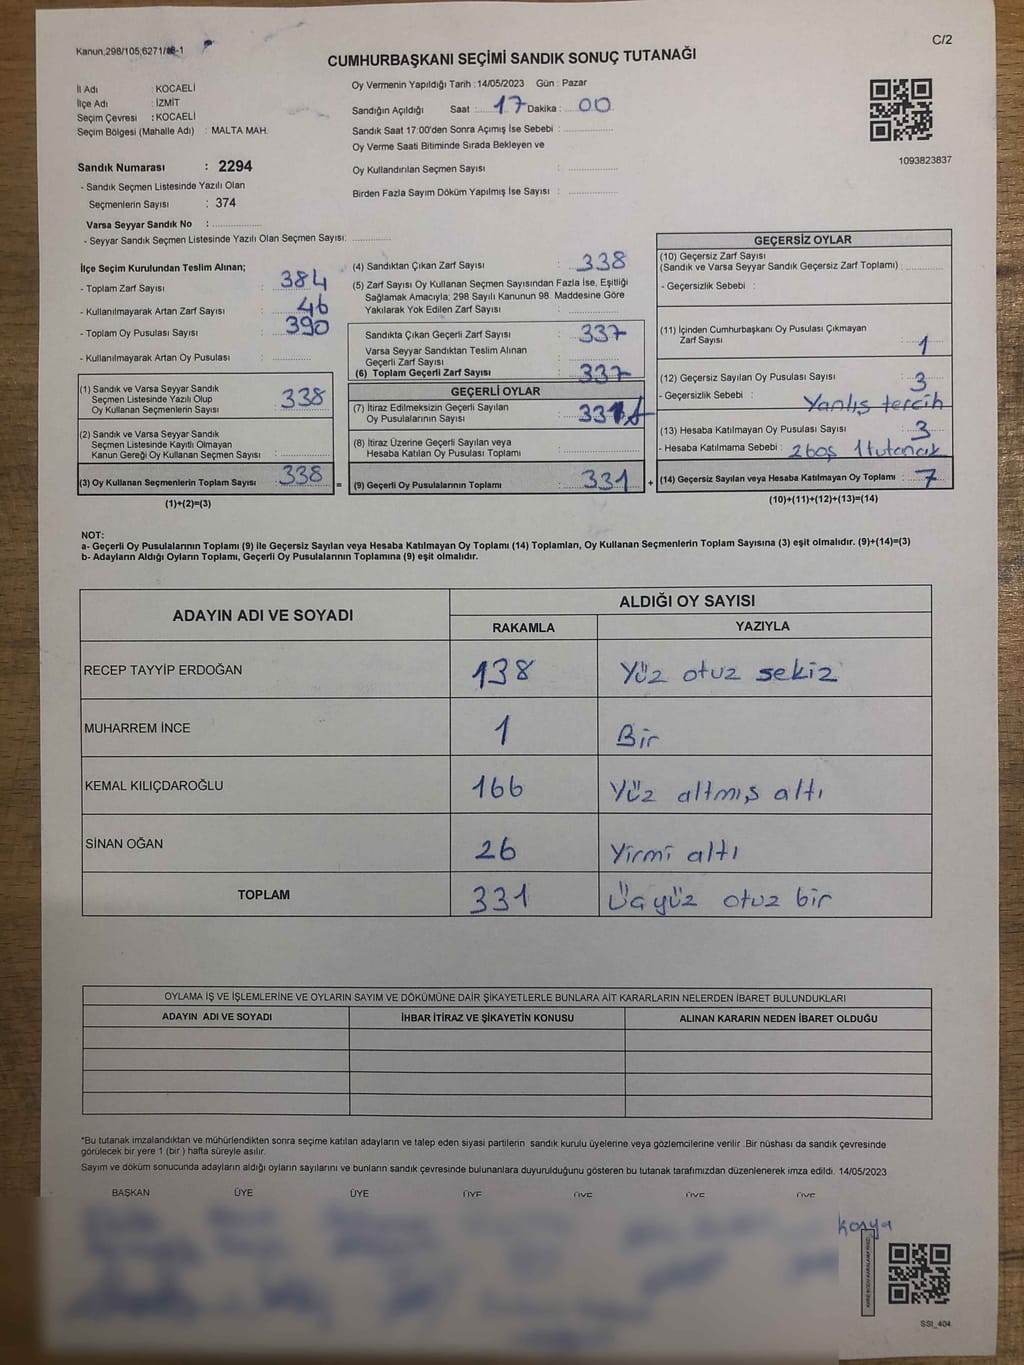 Kanun,298/105,6271/
C/2
CUMHURBAŞKANI SEÇİMİ SANDIK SONUÇ TUTANAĞI
İl Adı : KOCAELİ
İlçe Adı : İZMİT
Seçim Çevresi : KOCAELİ
Seçim Bölgesi (Mahalle Adı) : MALTA MAH.
Oy Vermenin Yapıldığı Tarih :14/05/2023 Gün : Pazar
Sandığın Açıldığı Saat : 17 Dakika : 00
Sandık Saat 17:00'den Sonra Açımış İse Sebebi :
Oy Verme Saati Bitiminde Sırada Bekleyen ve
Oy Kullandırılan Seçmen Sayısı :
Birden Fazla Sayım Döküm Yapılmış İse Sayısı :
1093823837
Sandık Numarası : 2294
- Sandık Seçmen Listesinde Yazılı Olan
Seçmenlerin Sayısı : 374
Varsa Seyyar Sandık No :
- Seyyar Sandık Seçmen Listesinde Yazılı Olan Seçmen Sayısı:
İlçe Seçim Kurulundan Teslim Alınan;
- Toplam Zarf Sayısı : 384
- Kullanılmayarak Artan Zarf Sayısı : 46
- Toplam Oy Pusulası Sayısı : 390
- Kullanılmayarak Artan Oy Pusulası :
(1) Sandık ve Varsa Seyyar Sandık
Seçmen Listesinde Yazılı Olup
Oy Kullanan Seçmenlerin Sayısı : 338
(2) Sandık ve Varsa Seyyar Sandık
Seçmen Listesinde Kayıtlı Olmayan
Kanun Gereği Oy Kullanan Seçmen Sayısı :
(3) Oy Kullanan Seçmenlerin Toplam Sayısı : 338
(1)+(2)=(3)
=
(4) Sandıktan Çıkan Zarf Sayısı : 338
(5) Zarf Sayısı Oy Kullanan Seçmen Sayısından Fazla İse, Eşitliği
Sağlamak Amacıyla; 298 Sayılı Kanunun 98. Maddesine Göre
Yakılarak Yok Edilen Zarf Sayısı :
Sandıkta Çıkan Geçerli Zarf Sayısı : 337
Varsa Seyyar Sandıktan Teslim Alınan
Geçerli Zarf Sayısı :
(6) Toplam Geçerli Zarf Sayısı : 337
GEÇERLİ OYLAR
(7) İtiraz Edilmeksizin Geçerli Sayılan
Oy Pusulalarının Sayısı : 331
(8) İtiraz Üzerine Geçerli Sayılan veya
Hesaba Katılan Oy Pusulası Toplamı :
(9) Geçerli Oy Pusulalarının Toplamı : 331
+
GEÇERSİZ OYLAR
(10) Geçersiz Zarf Sayısı
(Sandık ve Varsa Seyyar Sandık Geçersiz Zarf Toplamı) :
- Geçersizlik Sebebi :
(11) İçinden Cumhurbaşkanı Oy Pusulası Çıkmayan
Zarf Sayısı : 1
(12) Geçersiz Sayılan Oy Pusulası Sayısı : 3
- Geçersizlik Sebebi : Yanlış tercih
(13) Hesaba Katılmayan Oy Pusulası Sayısı : 3
- Hesaba Katılmama Sebebi : 2 boş 1 tutanak
(14) Geçersiz Sayılan veya Hesaba Katılmayan Oy Toplamı : 7
(10)+(11)+(12)+(13)=(14)
NOT:
a- Geçerli Oy Pusulalarının Toplamı (9) ile Geçersiz Sayılan veya Hesaba Katılmayan Oy Toplamı (14) Toplamları, Oy Kullanan Seçmenlerin Toplam Sayısına (3) eşit olmalıdır. (9)+(14)=(3)
b- Adayların Aldığı Oyların Toplamı, Geçerli Oy Pusulalarının Toplamına (9) eşit olmalıdır.
ADAYIN ADI VE SOYADI
ALDIĞI OY SAYISI
RAKAMLA YAZIYLA
RECEP TAYYİP ERDOĞAN 138 Yüz otuz sekiz
MUHARREM İNCE 1 Bir
KEMAL KILIÇDAROĞLU 166 Yüz altmış altı
SİNAN OĞAN 26 Yirmi altı
TOPLAM 331 Üçyüz otuz bir
OYLAMA İŞ VE İŞLEMLERİNE VE OYLARIN SAYIM VE DÖKÜMÜNE DAİR ŞİKAYETLERLE BUNLARA AİT KARARLARIN NELERDEN İBARET BULUNDUKLARI
ADAYIN ADI VE SOYADI İHBAR İTİRAZ VE ŞİKAYETİN KONUSU ALINAN KARARIN NEDEN İBARET OLDUĞU
*Bu tutanak imzalandıktan ve mühürlendikten sonra seçime katılan adayların ve talep eden siyasi partilerin sandık kurulu üyelerine veya gözlemcilerine verilir .Bir nüshası da sandık çevresinde
görülecek bir yere 1 (bir ) hafta süreyle asılır.
Sayım ve döküm sonucunda adayların aldığı oyların sayılarını ve bunların sandık çevresinde bulunanlara duyurulduğunu gösteren bu tutanak tarafımızdan düzenlenerek imza edildi. 14/05/2023
BAŞKAN ÜYE ÜYE ÜYE ÜYE ÜYE ÜYE
SSI_404